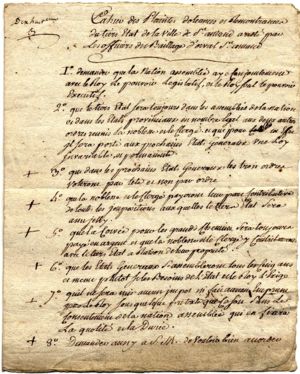 Cahier des Plaintes, doleances et Remontrances
du tiers Etat de la Ville de St amand arreté par
Les officiers du Bailliage
1° demander que la Nation assemblée ay conjointement
avec le Roy le pouvoir Legislatif, et le Roy seul le pouvoir
Executif.
2° que le tiers Etat soit toujours dans les assemblées de la nation
et dans les Etats provinciaux en nombre egal aux deux autres
ordres reunis la noblesse et le Clergé, et qui pour
sera porté aux prochains Etats generaux
3° que dans les prochains Etats Generaux les trois ordres
voteront par tete et non par ordre.
4° que la noblesse et le Clergé payeront leur part
de toutes les impositions aux quelles le tiers Etat sera
5° que la Corvée pour les grands chemins sera toujours
payée en argent et que la noblesse et le Clergé y Contribueront
avec le tiers Etat a raison de leur propriété
6° que les Etats Generaux s'assembleront tous les cinq ans
et meme plutot si les besoins de l'Etat et le Roy l'exige
7° qu'il ne sera mis aucun impot ni fait aucun Emprunt
par le Roy sous quelque pretexte que ce soit sans le
Consentement de la nation assemblée qui en fixera
La quotité et la Durée.
8° Demander aussy a S. M. de vouloir bien accorder